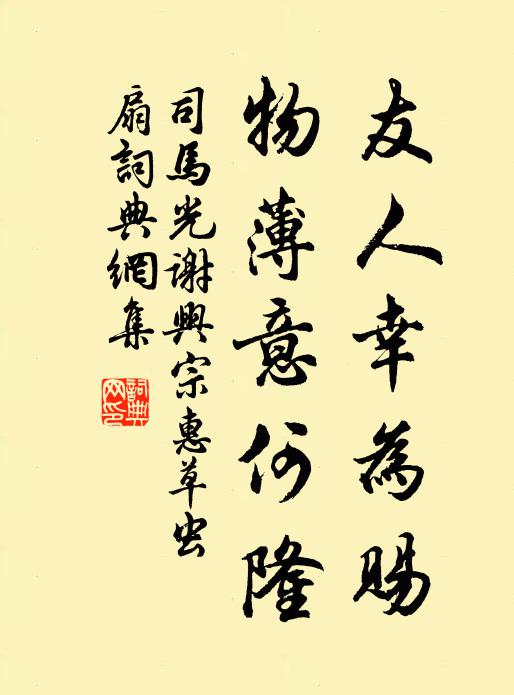 友人幸為賜
物薄意何隆
司馬光謝興宗惠草虫
扇詞典網集
詞典網印